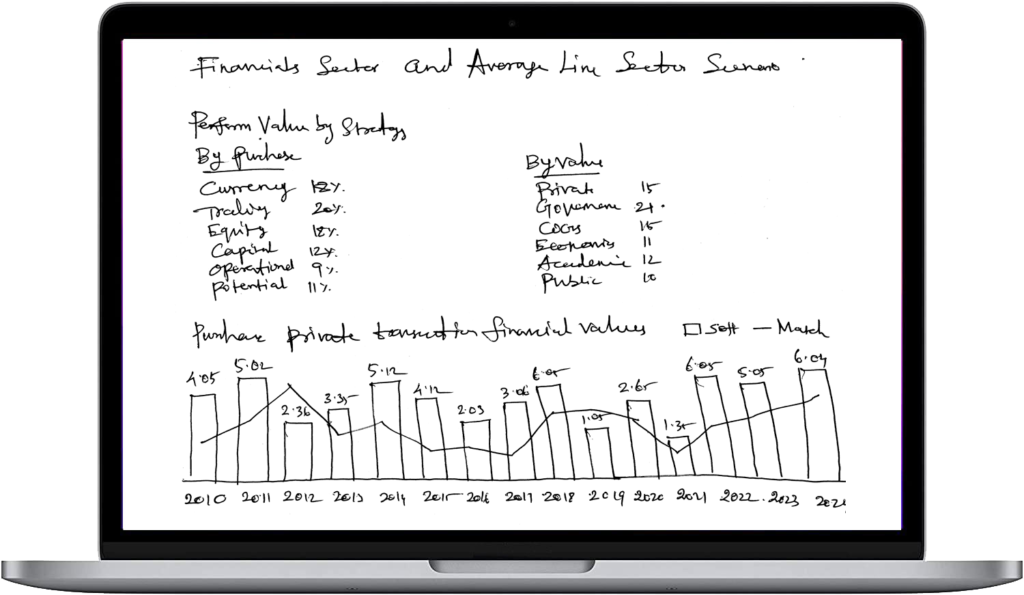 Financials Sector and Average Line Sector Scenario
Perform Value by Strategy
By Purchase
Currency 18%
Trading 20%
Equity 18%
Capital 12%
Operational 9%
Potential 11%
By Value
Private 15
Government 21
15
Economis 11
Academic 12
Public 10
Purchase private transaction financial values
Match
4.05 5.02 2.36 3.35 5.12 4.12 2.03 3.06 6.05 1.05 2.65 1.35 6.05 5.05 6.04
2010 2011 2012 2013 2014 2015 2016 2017 2018 2019 2020 2021 2022 2023 2024